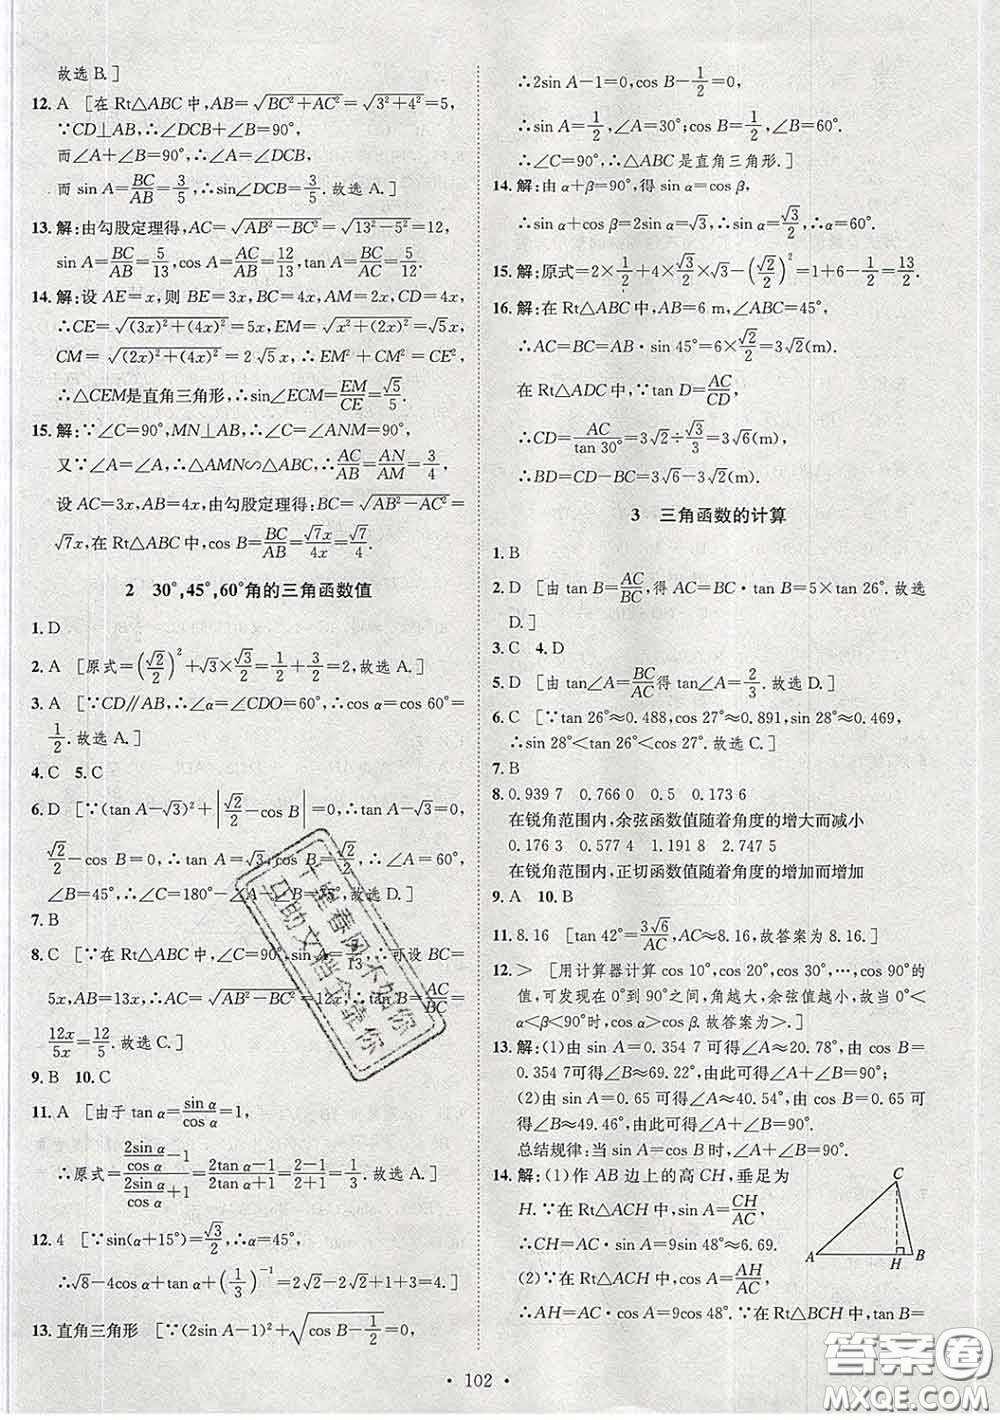 故选 B.]
12. A [在 Rt△ABC 中,AB=√(BC²+AC²)=√(3²+4²)=5,
∵CD⊥AB,∴∠DCB+∠B=90°,
而∠A+∠B=90°,∴∠A=∠DCB,
而 sin A=BC/AB=3/5,∴sin∠DCB=3/5.故选 A.]
13. 解:由勾股定理得,AC=√(AB²-BC²)=√(13²-5²)=12,
sin A=BC/AB=5/13,cos A=AC/AB=12/13,tan A=BC/AC=5/12.
14. 解:设 AE=x,则 BE=3x,BC=4x,AM=2x,CD=4x,
∴CE=√((3x)²+(4x)²)=5x,EM=√(x²+(2x)²)=√5x,
CM=√((2x)²+(4x)²)=2√5x,∴EM²+CM²=CE²,
∴△CEM是直角三角形,∴sin∠ECM=EM/CE=√5/5.
15. 解:∵∠C=90°,MN⊥AB,∴∠C=∠ANM=90°,
又∵∠A=∠A,∴△AMN∽△ABC,∴AC/AB=AN/AM=3/4,
设 AC=3x,AB=4x,由勾股定理得:BC=√(AB²-AC²)=
√7x,在 Rt△ABC 中,cos B=BC/AB=√7x/4x=√7/4.
2 30°,45°,60°角的三角函数值
1. D
2. A [原式=(√2/2)²+√3×√3/2=1/2+3/2=2,故选 A.]
3. A [∵CD∥AB,∴∠α=∠CDO=60°,∴cos α=cos 60°=
1/2.故选 A.]
4. C 5. C
6. D [∵(tan A-√3)²+|√2/2-cos B|=0,∴tan A-√3=0,
√2/2-cos B=0,∴tan A=√3,cos B=√2/2,∠A=60°,
∠B=45°,∴∠C=180°-∠A-∠B=75°.故选 D.]
7. B
8. C [∵在 Rt△ABC 中,∠C=90°,sin A=5/13,∴可设 BC=
5x,AB=13x,∴AC=√(AB²-BC²)=12x,∴tan B=AC/BC=
12x/5x=12/5.故选 C.]
9. B 10. C
11. A [由于 tan α=sin α/cos α=1,
∴原式=(2sin α/cos α-1)/(2sin α/cos α+1)=(2tan α-1)/(2tan α+1)=(2-1)/(2+1)=1/3.故选 A.]
12. 4 [∵sin(α+15°)=√3/2,∴α=45°,
∴√8-4cos α+tan α+(1/3)⁻¹=2√2-2√2+1+3=4.]
13. 直角三角形 [∵(2sin A-1)²+√(cos B-1/2)=0,
∴2sin A-1=0,cos B-1/2=0,
∴sin A=1/2,∠A=30°;cos B=1/2,∠B=60°.
∴∠C=90°,∴△ABC 是直角三角形.]
14. 解:由 α+β=90°,得 sin α=cos β,
∴sin α+cos β=2sin α=√3,∴sin α=√3/2,∴∠α=60°.
15. 解:原式=2×1/2+4×√3/2×√3-(√2/2)²=1+6-1/2=13/2.
16. 解:在 Rt△ABC 中,AB=6 m,∠ABC=45°,
∴AC=BC=AB·sin 45°=6×√2/2=3√2(m).
在 Rt△ADC 中,∵tan D=AC/CD,
∴CD=AC/tan 30°=3√2÷√3/3=3√6(m)
∴BD=CD-BC=3√6-3√2(m).
3 三角函数的计算
1. B
2. D [由 tan B=AC/BC,得 AC=BC·tan B=5×tan 26°.故选
D.]
3. C 4. D
5. D [由tan∠A=BC/AC得 tan∠A=2/3.故选 D.]
6. C [∵tan 26°≈0.488,cos 27°≈0.891,sin 28°≈0.469,
∴sin 28°<tan 26°<cos 27°.故选 C.]
7. B
8. 0.939 7 0.766 0 0.5 0.173 6
在锐角范围内,余弦函数值随着角度的增大而减小
0.176 3 0.577 4 1.191 8 2.747 5
在锐角范围内,正切函数值随着角度的增加而增加
9. A 10. B
11. 8.16 [tan 42°=3√6/AC,AC≈8.16,故答案为 8.16.]
12. > [用计算器计算 cos 10°,cos 20°,cos 30°,…,cos 90°的
值,可发现在 0°到 90°之间,角越大,余弦值越小,故当 0°<
α<β<90°时,cos α>cos β.故答案为>.]
13. 解:(1)由 sin A=0.354 7 可得∠A≈20.78°,由 cos B=
0.354 7可得∠B≈69.22°,由此可得∠A+∠B=90°;
(2)由 sin A=0.65 可得∠A≈40.54°,由 cos B=0.65 可
得∠B≈49.46°,由此可得∠A+∠B=90°.
总结规律:当 sin A=cos B 时,∠A+∠B=90°.
14. 解:(1)作 AB 边上的高 CH,垂足为
H.∵在 Rt△ACH 中,sin A=CH/AC,
∴CH=AC·sin A=9sin 48°≈6.69.
(2)∵在 Rt△ACH 中,cos A=AH/AC,
∴AH=AC·cos A=9cos 48°.∵在 Rt△BCH 中,tan B=
C
A
H
B
102
答案圈
MXQE.COM